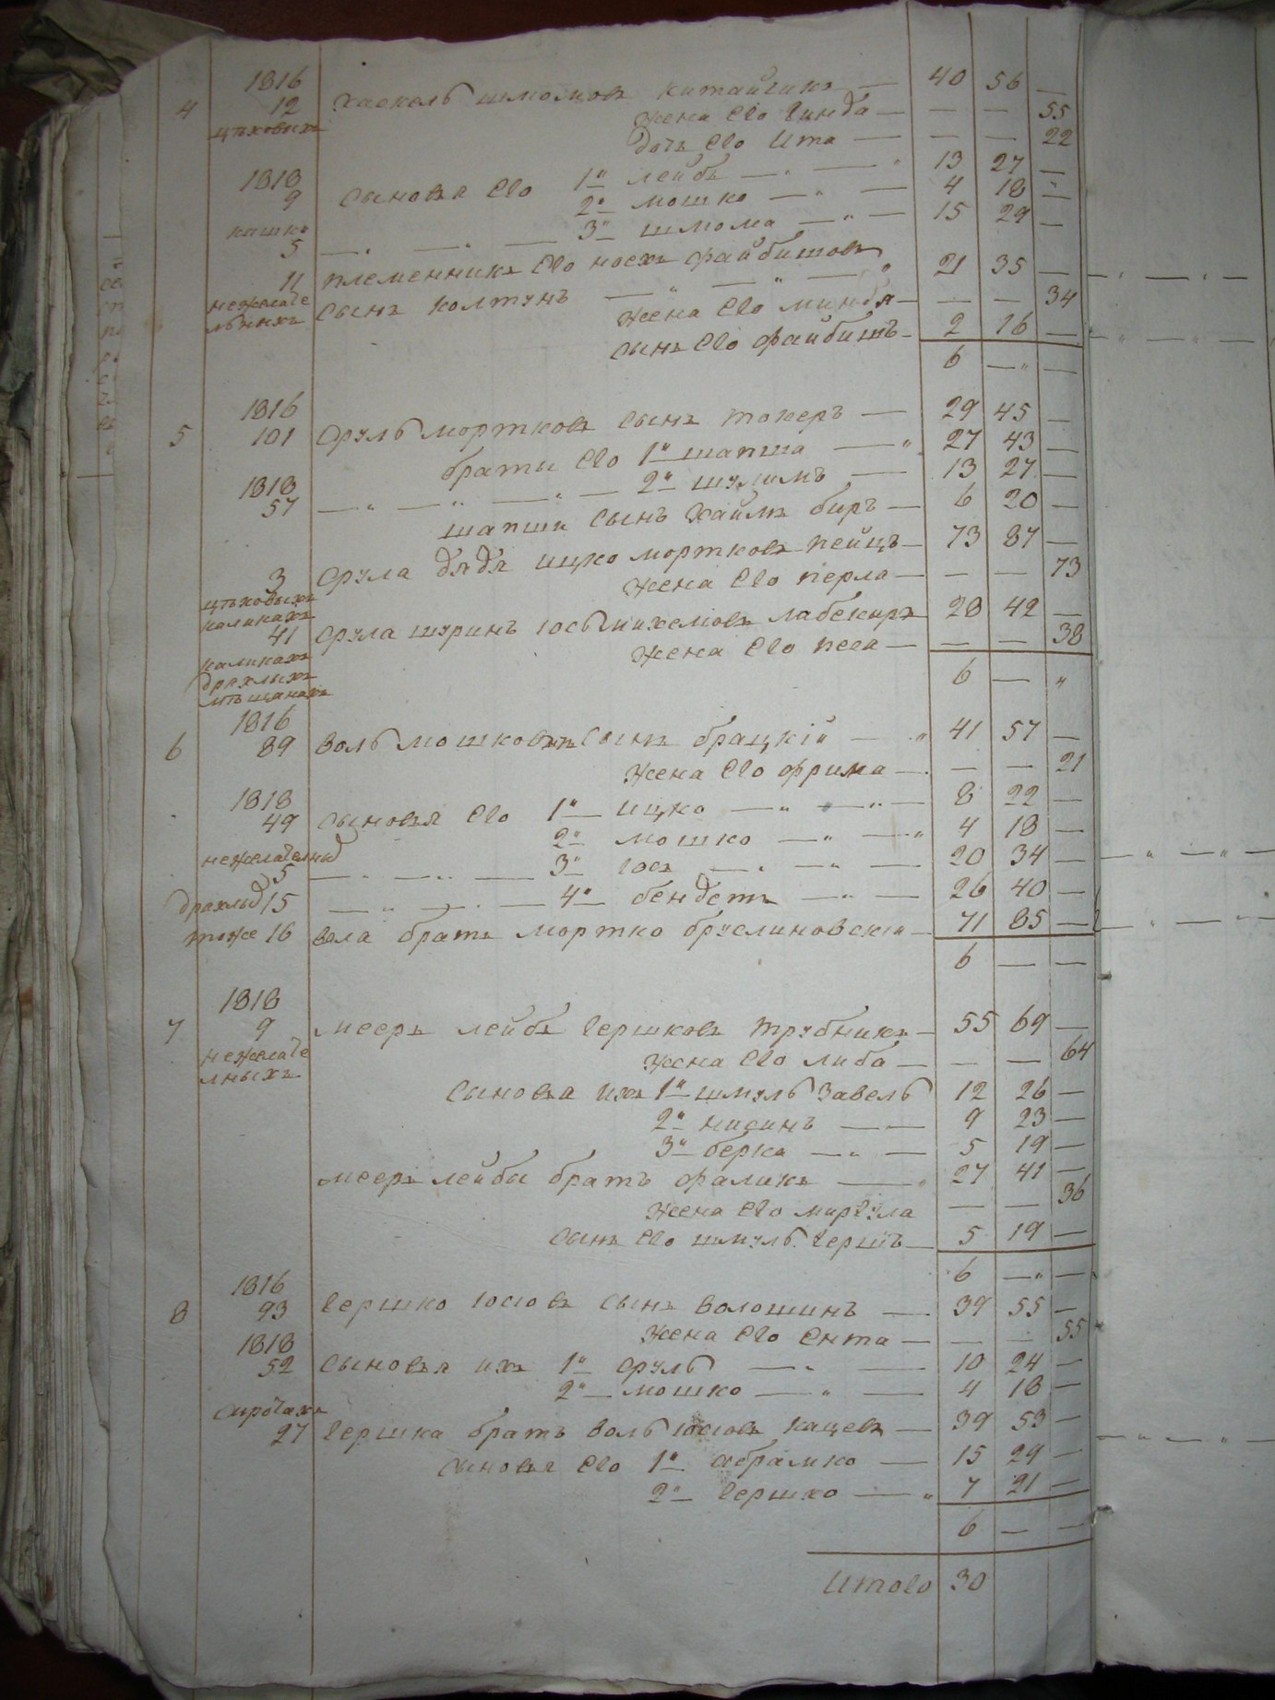 1816
4 12 Хаскель Шмомовъ Китайчикъ — 40 56 —
цѣховыхъ жена Его Гинда — — — 55
дочь Его Ита — — — 22
1818
9 Сыновья Его 1й Лейбъ — 13 27 —
2й Мошко — 4 18 —
кашк 3й Шмома — 15 29 —
5
11 племенникъ Его Носхъ Файбишовъ
нежелате Сынъ Колтунъ — 21 35 —
льныхъ жена Его Миндя — — — 34
сынъ Его Файбишъ — 2 16 —
6 — —
1816
5 101 Сруль Мортковъ Сынъ Токеръ — 29 45 —
братья Его 1й Шапша — 27 43 —
1818
57 — 2й Шулимъ — 13 27 —
Шапши Сынъ Хаимъ Биръ — 6 20 —
3 Срула дядя Ицко Мортковъ Пейцъ — 73 87 —
цѣховыхъ жена Его Перла — — — 73
каликахъ
41 Срула шуринъ Юсь Михелювъ Лабекиръ 28 42 —
каликахъ жена Его Песа — — — 38
дряхлыхъ
мѣщанахъ 6 — "
1816
6 89 Воль Мошковъ Сынъ Брацкій — 41 57 —
жена Его Фрима — — — 21
1818
49 Сыновья Его 1й Ицко — 8 22 —
2й Мошко — 4 18 —
нежелательныхъ
5 — 3й Іосъ — 20 34 —
дряхлыхъ 15 — 4й Бендетъ — 26 40 —
тоже 16 Вола братъ Мортко Бруслиновскій — 71 85 —
6 — —
1818
7 9 Мееръ Лейбъ Гершковъ Трубникъ — 55 69 —
нежелате жена Его Либа — — — 64
льныхъ
Сыновья ихъ 1й Шмуль Завель 12 26 —
2й Нисинъ — 9 23 —
3й Берка — 5 19 —
Мееръ Лейбы братъ Фаликъ — 27 41 —
жена Его Миргула — — 36
сынъ Его Шмуль Гершъ — 5 19 —
6 — —
1816
8 93 Гершко Юсіовъ Сынъ Волошинъ — 39 55 —
жена Его Ента — — — 55
1818
52 Сыновья ихъ 1й Сруль — 10 24 —
2й Мошко — 4 18 —
сиротахъ
27 Гершка братъ Воль Юсіовъ Кацевъ — 39 53 —
Сыновья Его 1й Абрамко — 15 29 —
2й Гершко — 7 21 —
6 — —
Итого 30